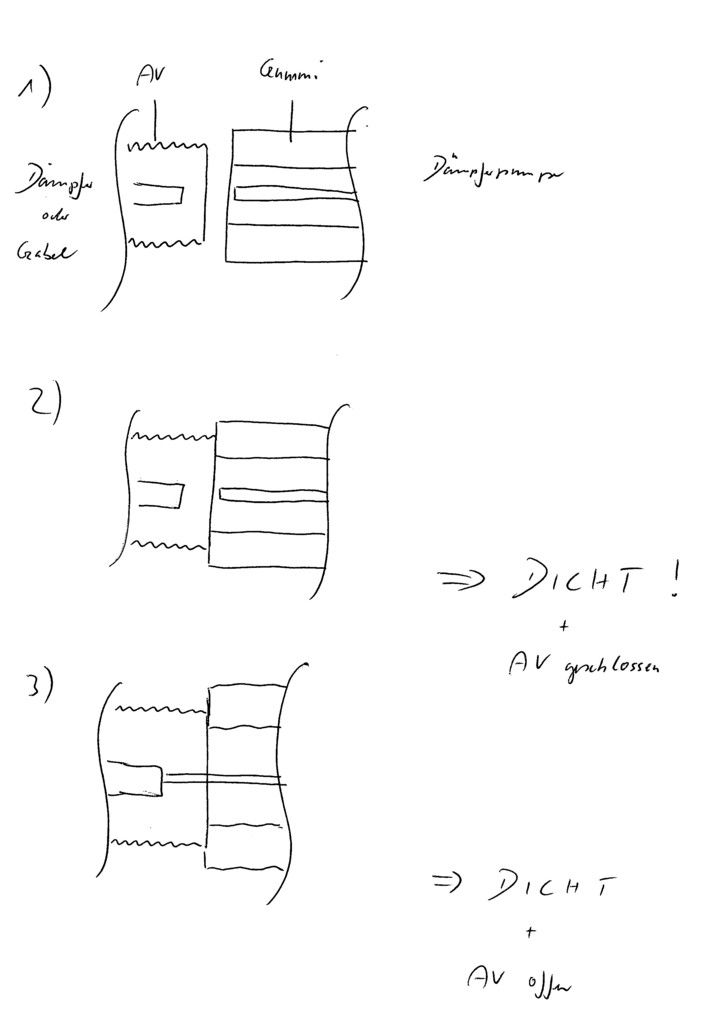 1)
AV
Gummi
Dämpfer
oder
Gabel
Dämpferpumpe
2)
⇒ DICHT !
+
AV geschlossen
3)
⇒ DICHT
+
AV offen